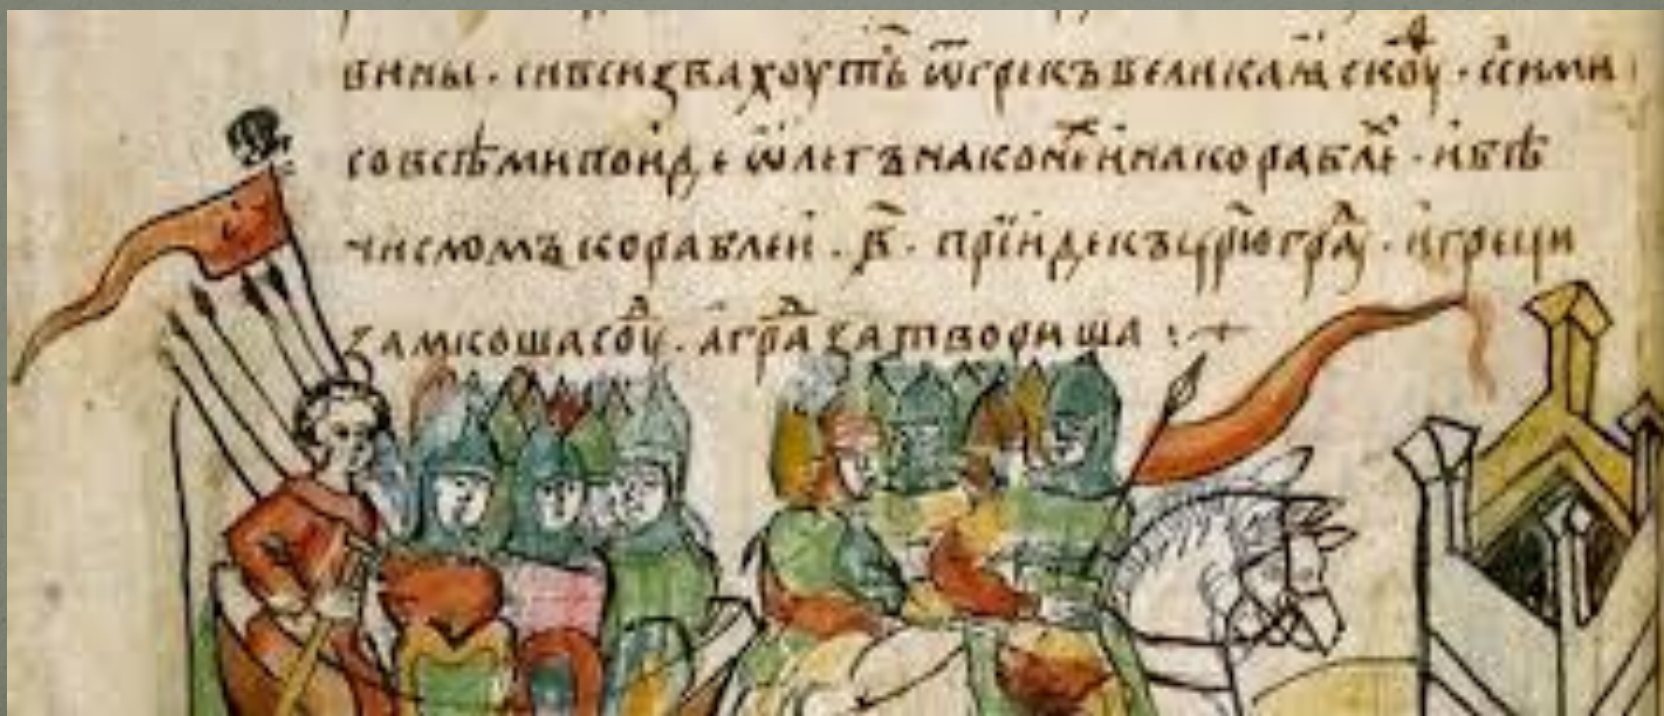 вины · сивси звахоуть ѿгрекъ великаꙗ скоу · ссими
совсѣми поиде ѡлегъ наконе инакорабле · ибѣ
числомъ кораблеи · в҃ · прїиде къцрюгра · игреци
замкоша соу · аградъ затвориша :·